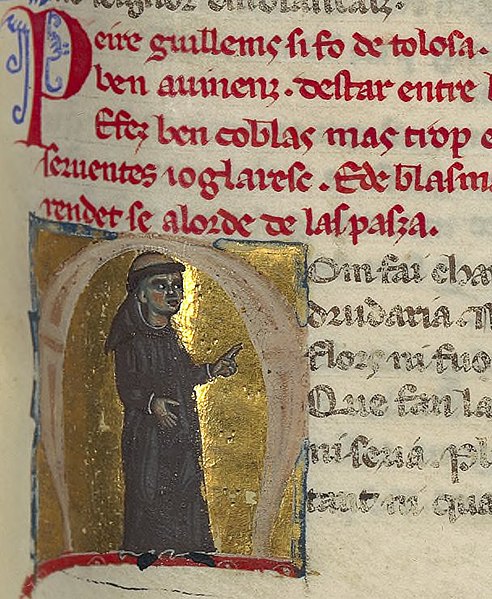 Peire guillems si fo de tolosa.
ben auinenz. destar entre
E fez ben coblas mas trop
seruentes ioglaresc. E de blasm
rendet se a lorde de laspasa.
On fai cha
drudaria.
flors ni fuo
Que fan la
miseria. pl
tant ni qua